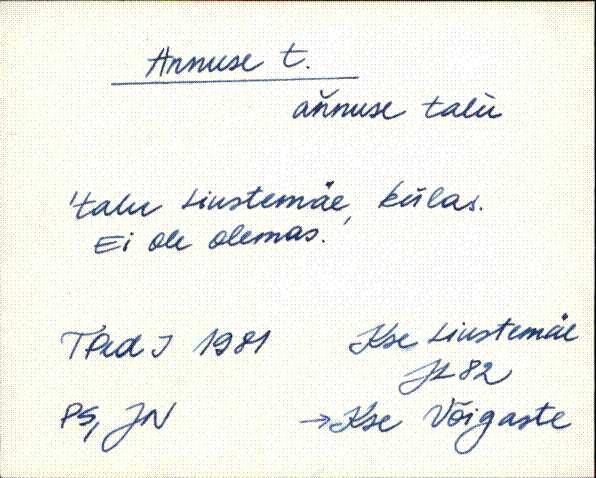 Annuse t.
aňnuse talu
'talu Liustemäe, külas.
Ei ole olemas.'
TPedI 1981 Kse Liustemäe
JL 82
PS, JN → Kse Võigaste